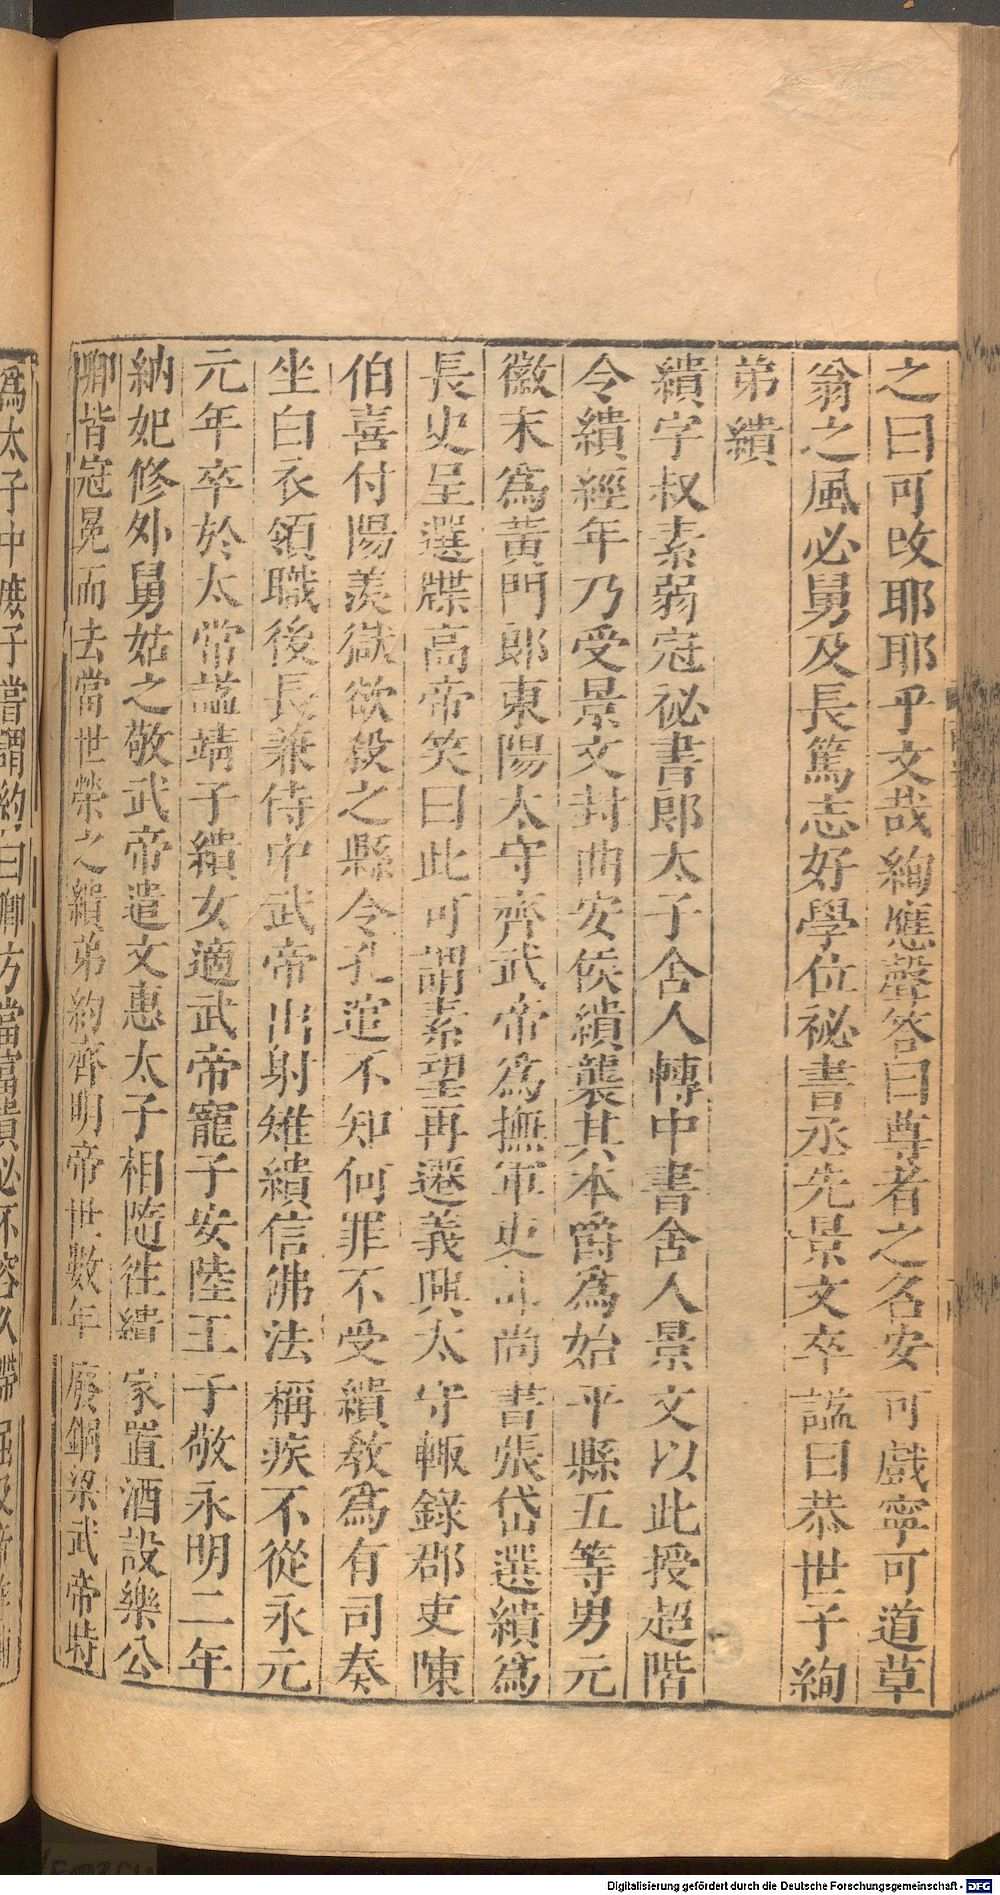 之曰可改耶耶乎文哉絢應聲答曰尊者之名安可戲寧可道草
翁之風必舅及長篤志好學位祕書丞先景文卒諡曰恭世子絢
弟繢
繢字叔素弱冠祕書郎太子舍人轉中書舍人景文以此授超階
令繢經年乃受景文封曲安侯繢襲其本爵為始平縣五等男元
徽末為黃門郎東陽太守齊武帝為撫軍吏部尚書張岱選繢為
長史呈選牒高帝笑曰此可謂素望再遷義興太守輙錄郡吏陳
伯喜付陽羨獄欲殺之縣令孔逭不知何罪不受繢敎為有司奏
坐白衣領職後長兼侍中武帝出射雉繢信佛法稱疾不從永元
元年卒於太常諡靖子繢女適武帝寵子安陸王子敬永明二年
納妃修外舅姑之敬武帝遣文惠太子相隨往繢家置酒設樂公
卿皆冠冕而去當世榮之繢弟約齊明帝世數年廢錮梁武帝時
為太子中庶子嘗謂約曰卿方當富貴必不容久滯屈及帝作輔
Digitalisierung gefördert durch die Deutsche Forschungsgemeinschaft - DFG